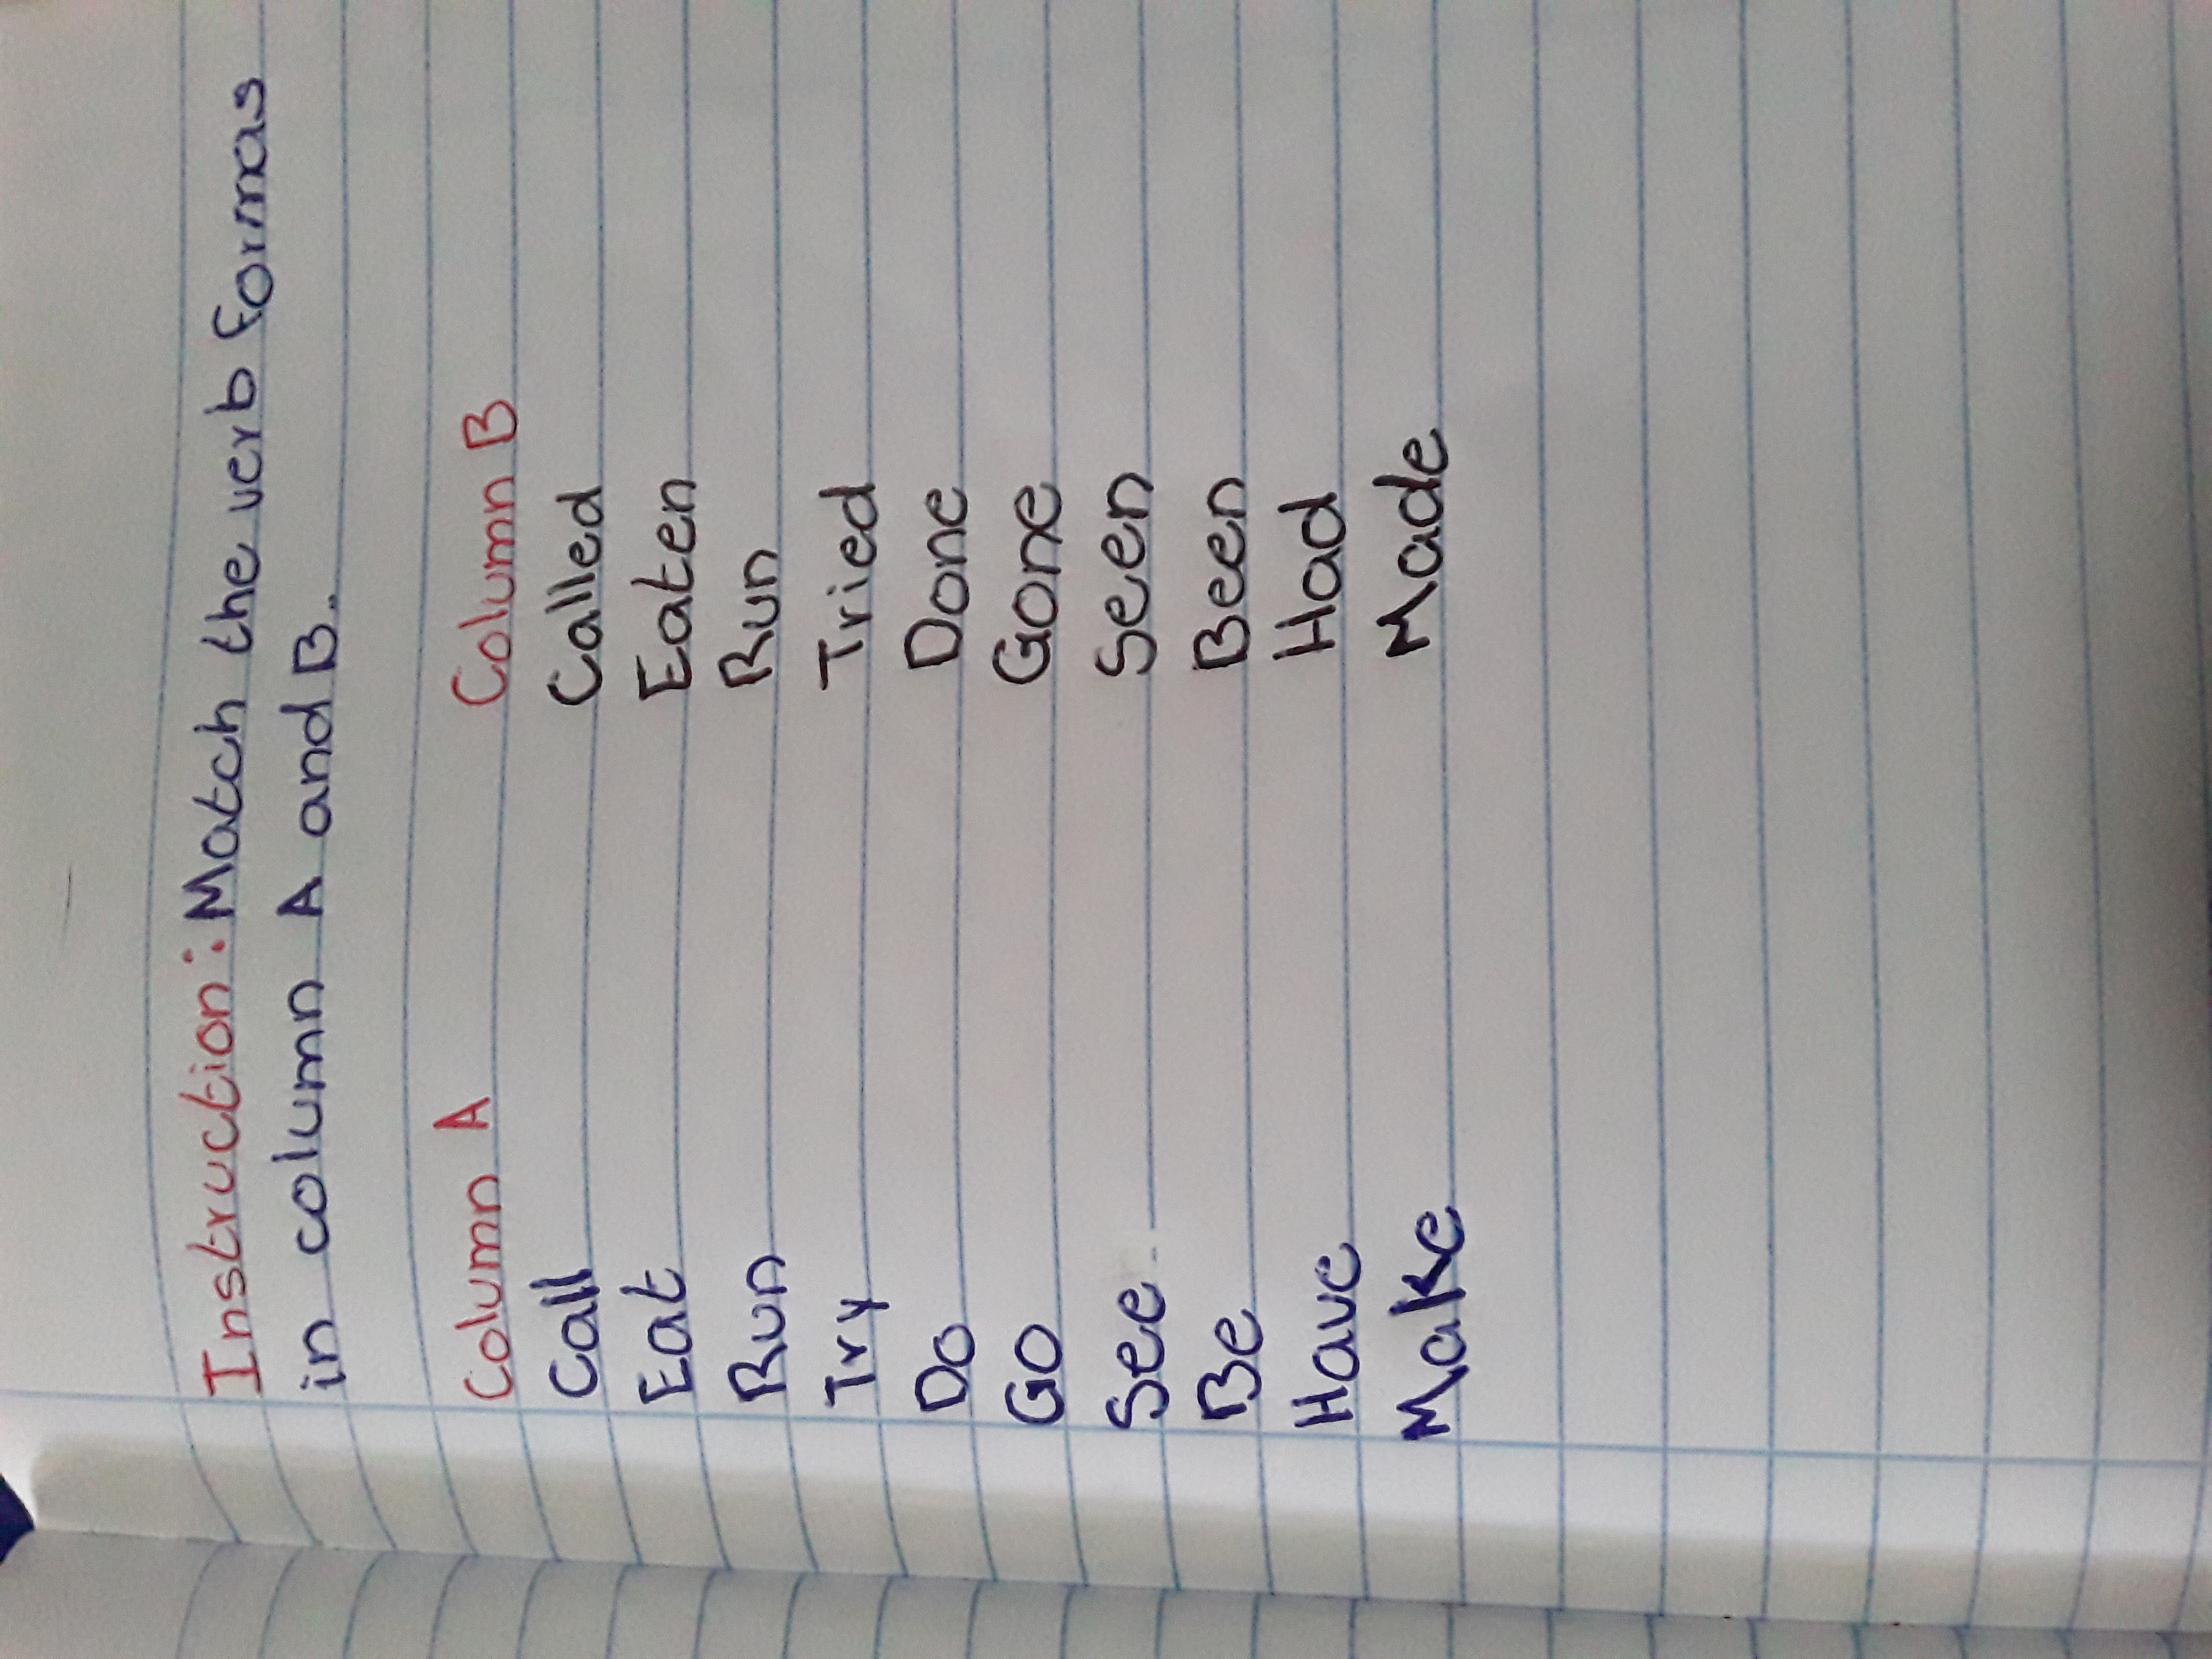 Instruction: Match the verb formas
in column A and B.
Column A Column B
Call Called
Eat Eaten
Run Run
Try Tried
Do Done
Go Gone
See Seen
Be Been
Have Had
Make Made